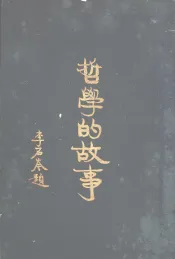 哲學的故事
李石岑題